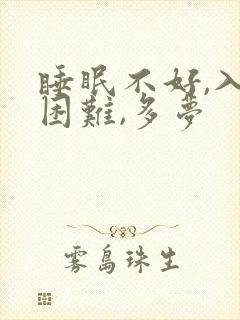 睡眠不好,入
困難,多夢
雾島珠生